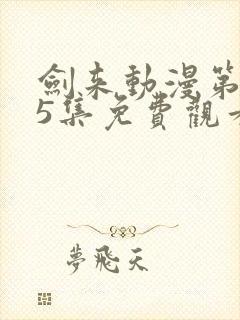 劍来動漫第
5集免費觀
夢飛天